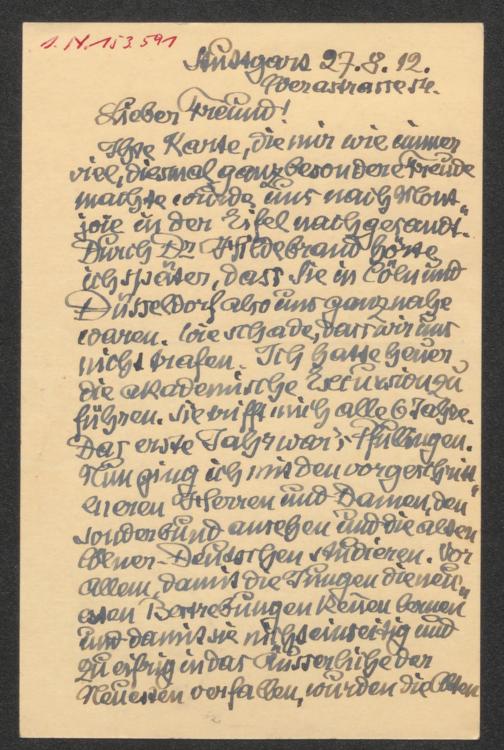 1.N.153.591
Stuttgart 27.8.12.
Werastrasse
Lieber Freund!
Ihre Karte, die mir wie immer
viel, diesmal ganz besondere Freude
machte wurde uns nach Mont-
joie in der Eifel nachgesandt.
Durch Dr Hildebrand hörte
ich später, dass Sie in Cöln und
Düsseldorf also uns ganz nahe
waren. Wie schade, dass wir uns
nicht trafen. Ich hatte heuer
die akademische Excursion zu
führen. Sie trifft mich alle 6 Jahre.
Das erste Jahr war's Pfullingen.
Nun ging ich mit den vorgeschrit-
teneren Herren und Damen, den
Sonderbund ansehen und die alten
Cölner-Deutschen studieren. Vor
allem, damit die Jungen die neu-
esten Bestrebungen kennen lernen
und damit sie nicht einseitig und
zu eifrig in das der
Neuesten verfallen, wurden die Alten